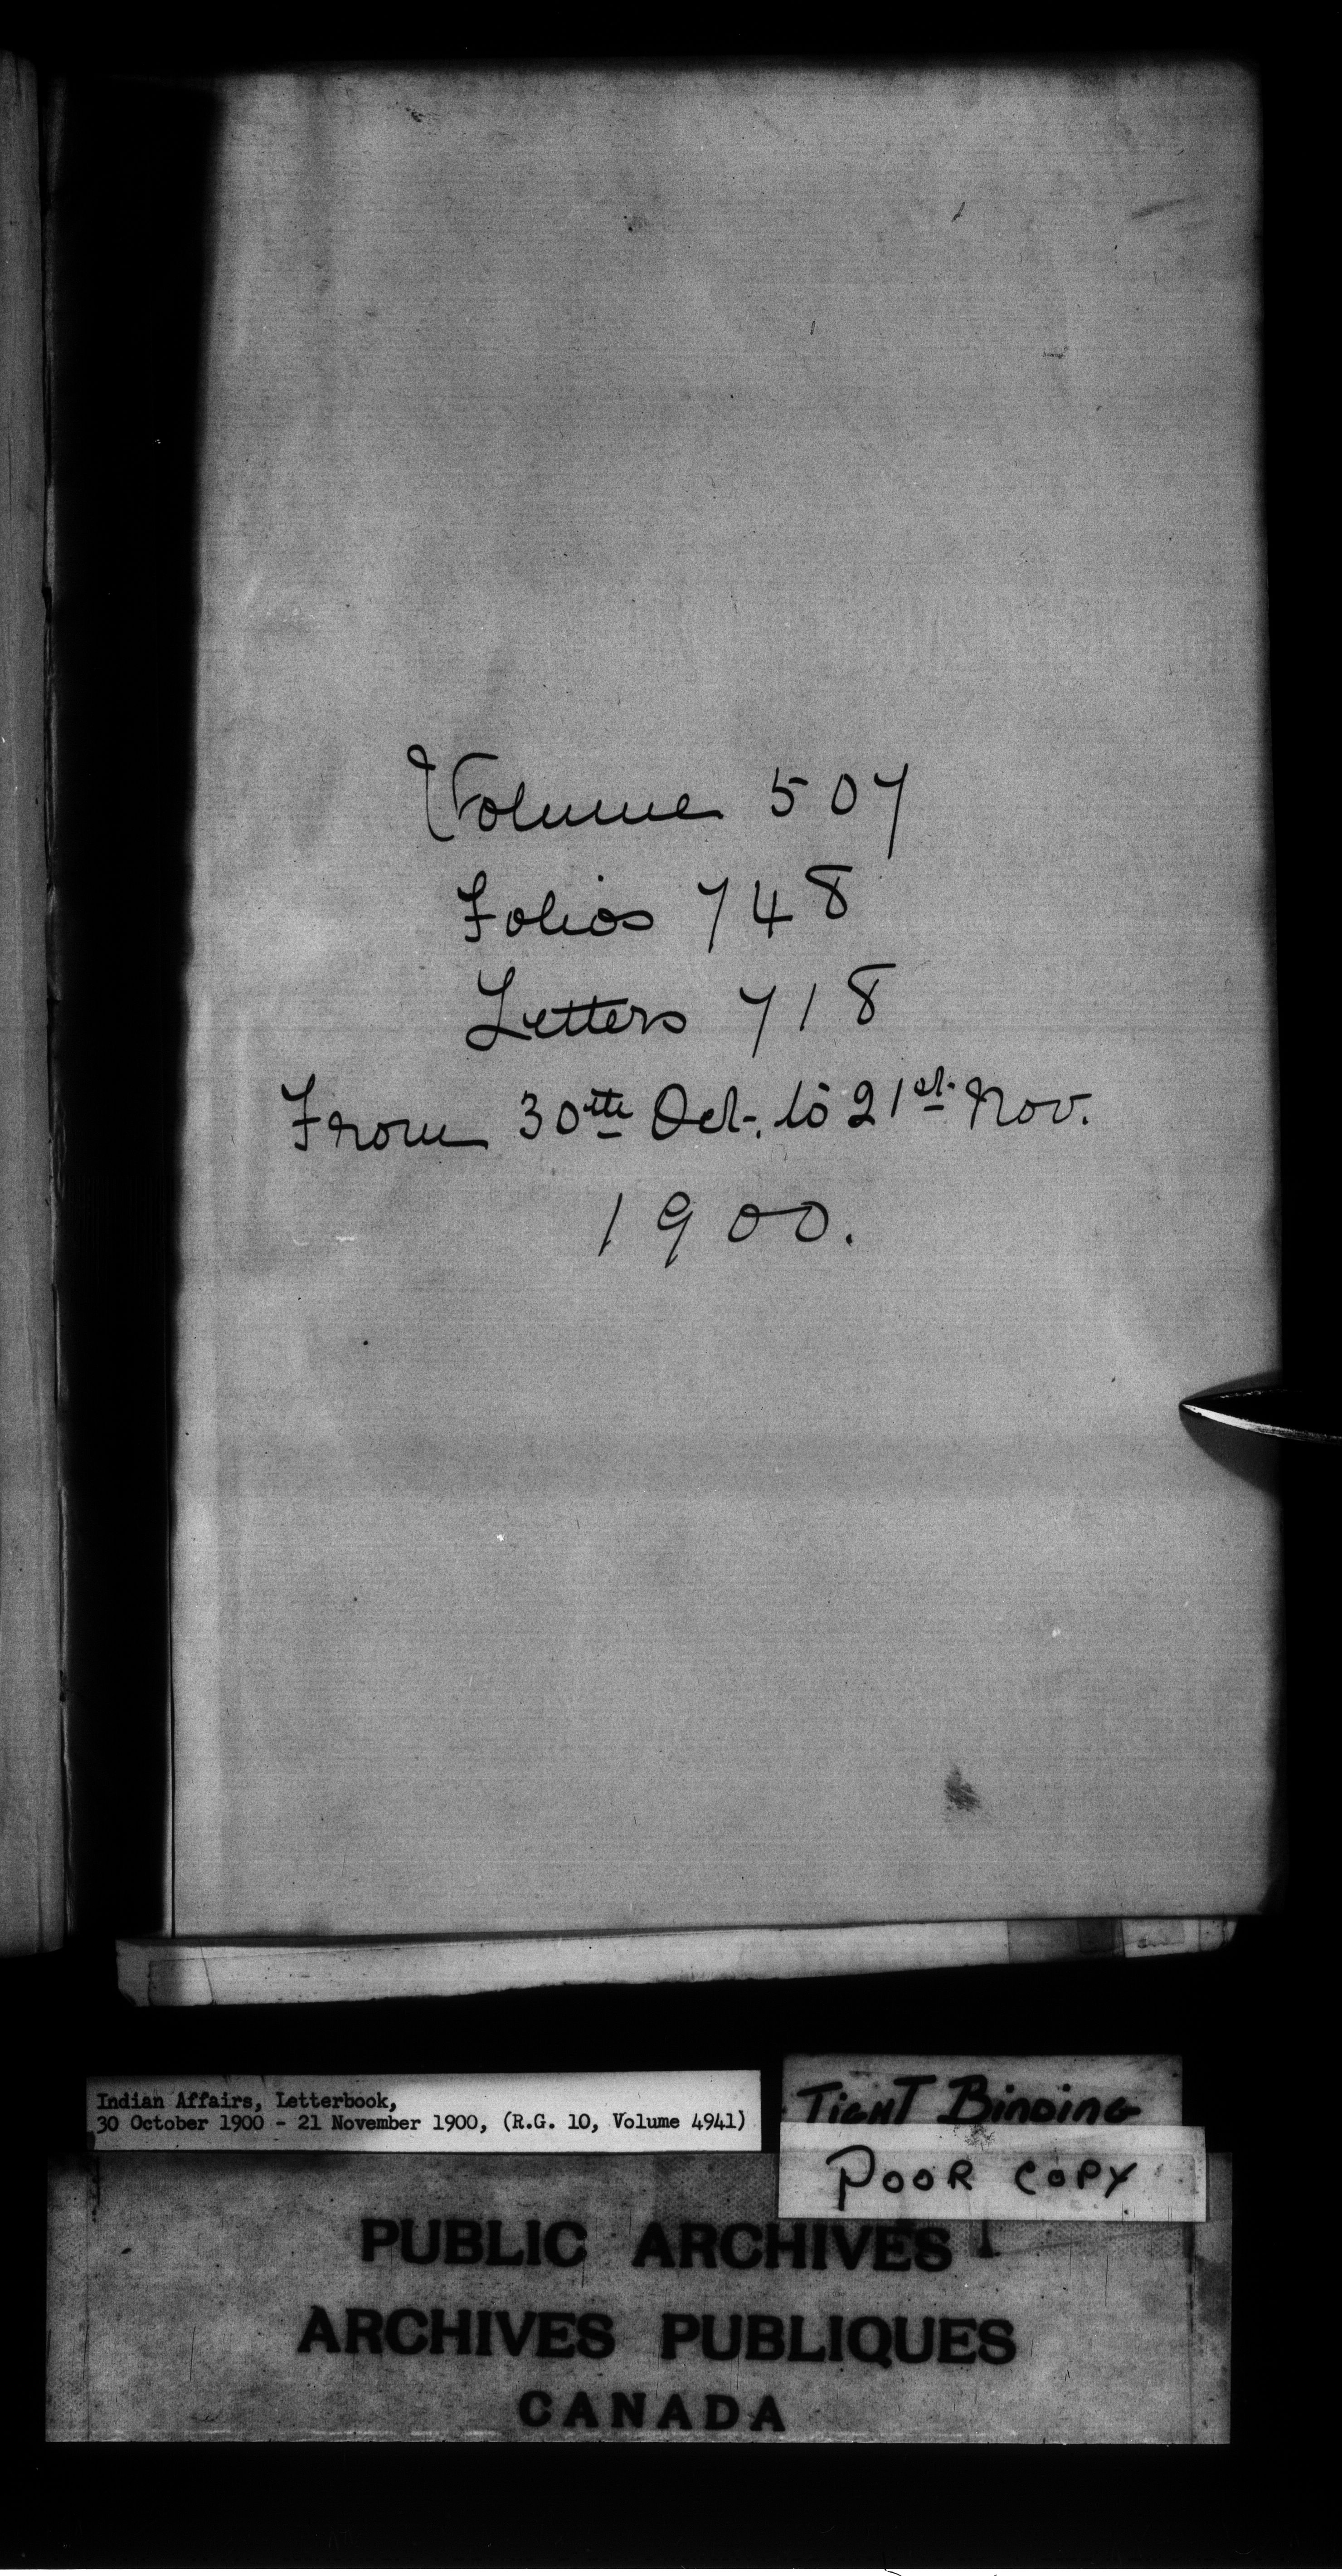 Volume 507
Folios 748
Letters 718
From 30th Oct. to 21st Nov.
1900.
Indian Affairs, Letterbook,
30 October 1900 - 21 November 1900, (R.G. 10, Volume 4941)
TIGHT BINDING
POOR COPY
PUBLIC ARCHIVES
ARCHIVES PUBLIQUES
CANADA